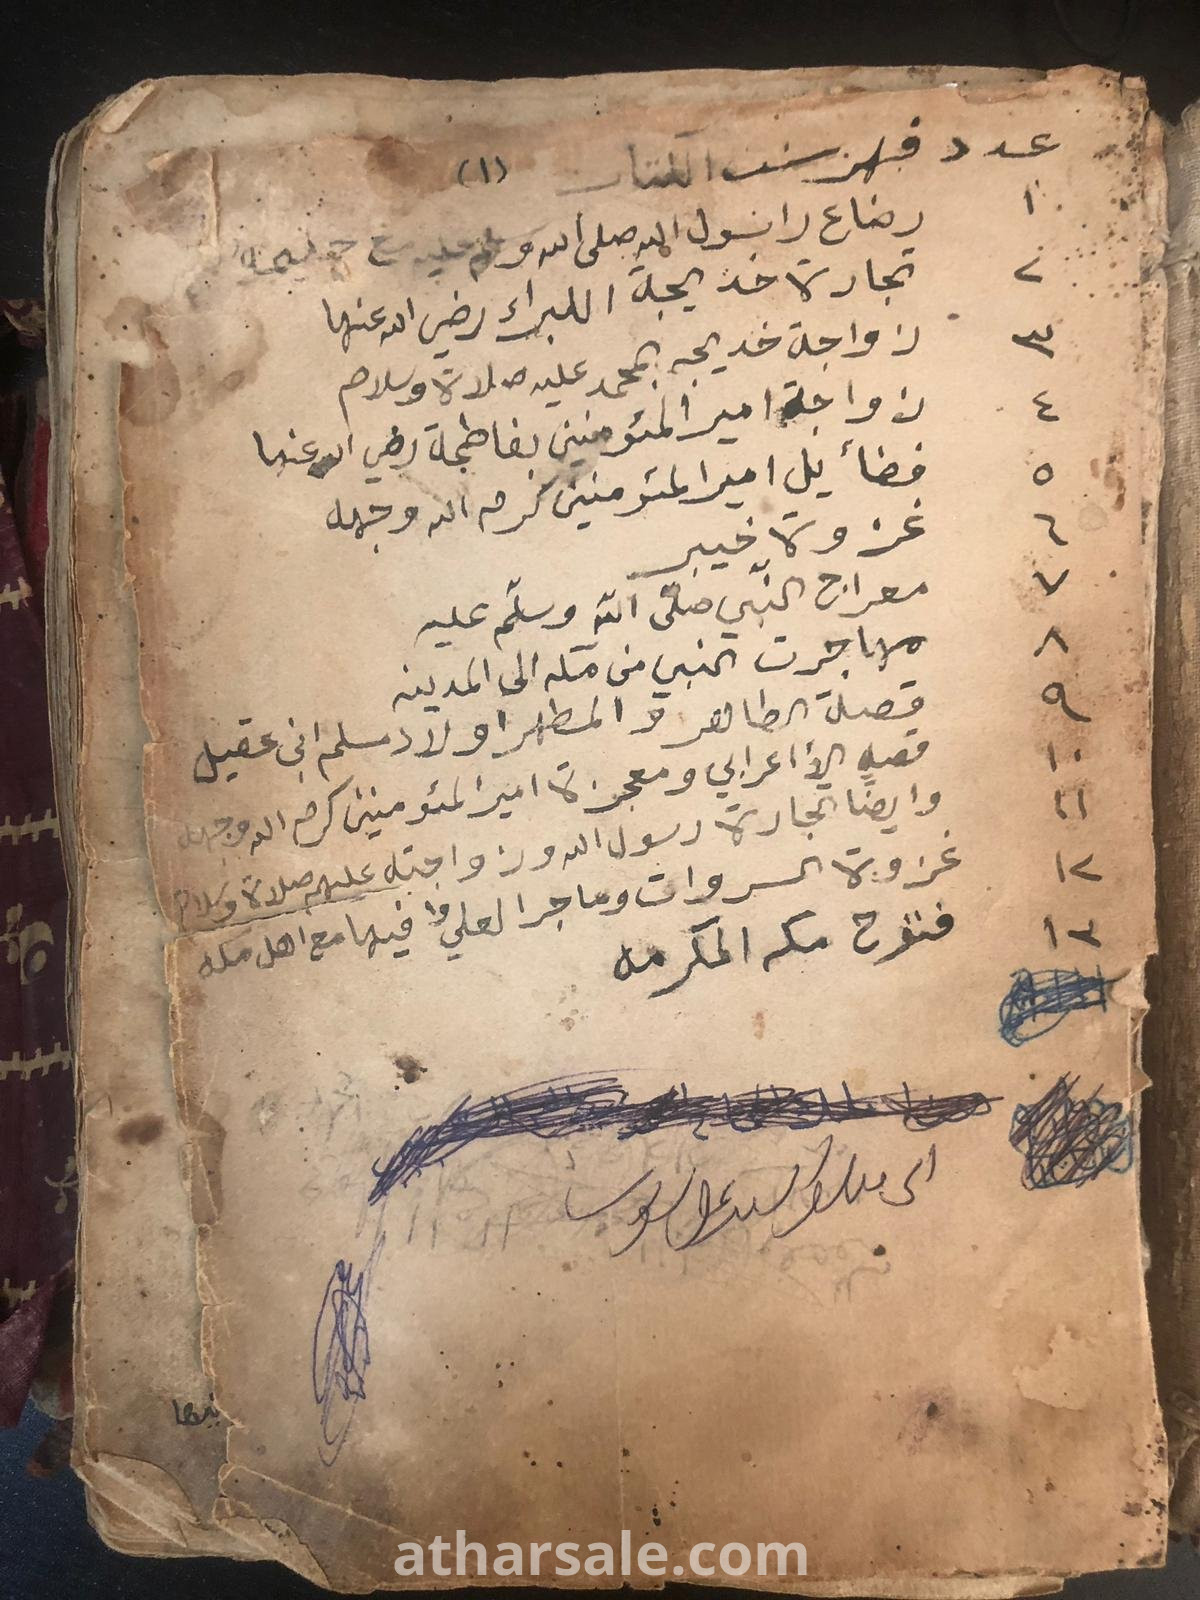 عدد فهرست الكتاب (١)
١ رضاع رانسول الله صلى الله وسلم عليه مع حليمة
٢ تجارة خديجة الكبراء رضي الله عنها
٣ زواجة خديجه بمحمد عليه صلاة وسلام
٤ زواجة امير المئومنين بفاطمة رضي الله عنها
٥ فضأيل امير المئومنين كرم الله وجهه
٦ غزوة خيبر
٧ معراج النّبي صلّى اللّه وسلّم عليه
٨ مهاجرت النبي من مكه الى المدينه
٩ قصة الطاهر و المطهر اولاد مسلم ابن عقيل
١٠ قصة الأاعرابي ومعجزة امير المئومنين كرم الله وجهه
١١ وايضًا تجارة رسول الله وزواجته عليهم صلاة وسلام
١٢ غزوة السروات وماجرا لعلي فيها مع اهل مكه
١٣ فتوح مكه المكرمه
الى
نيها
atharsale.com